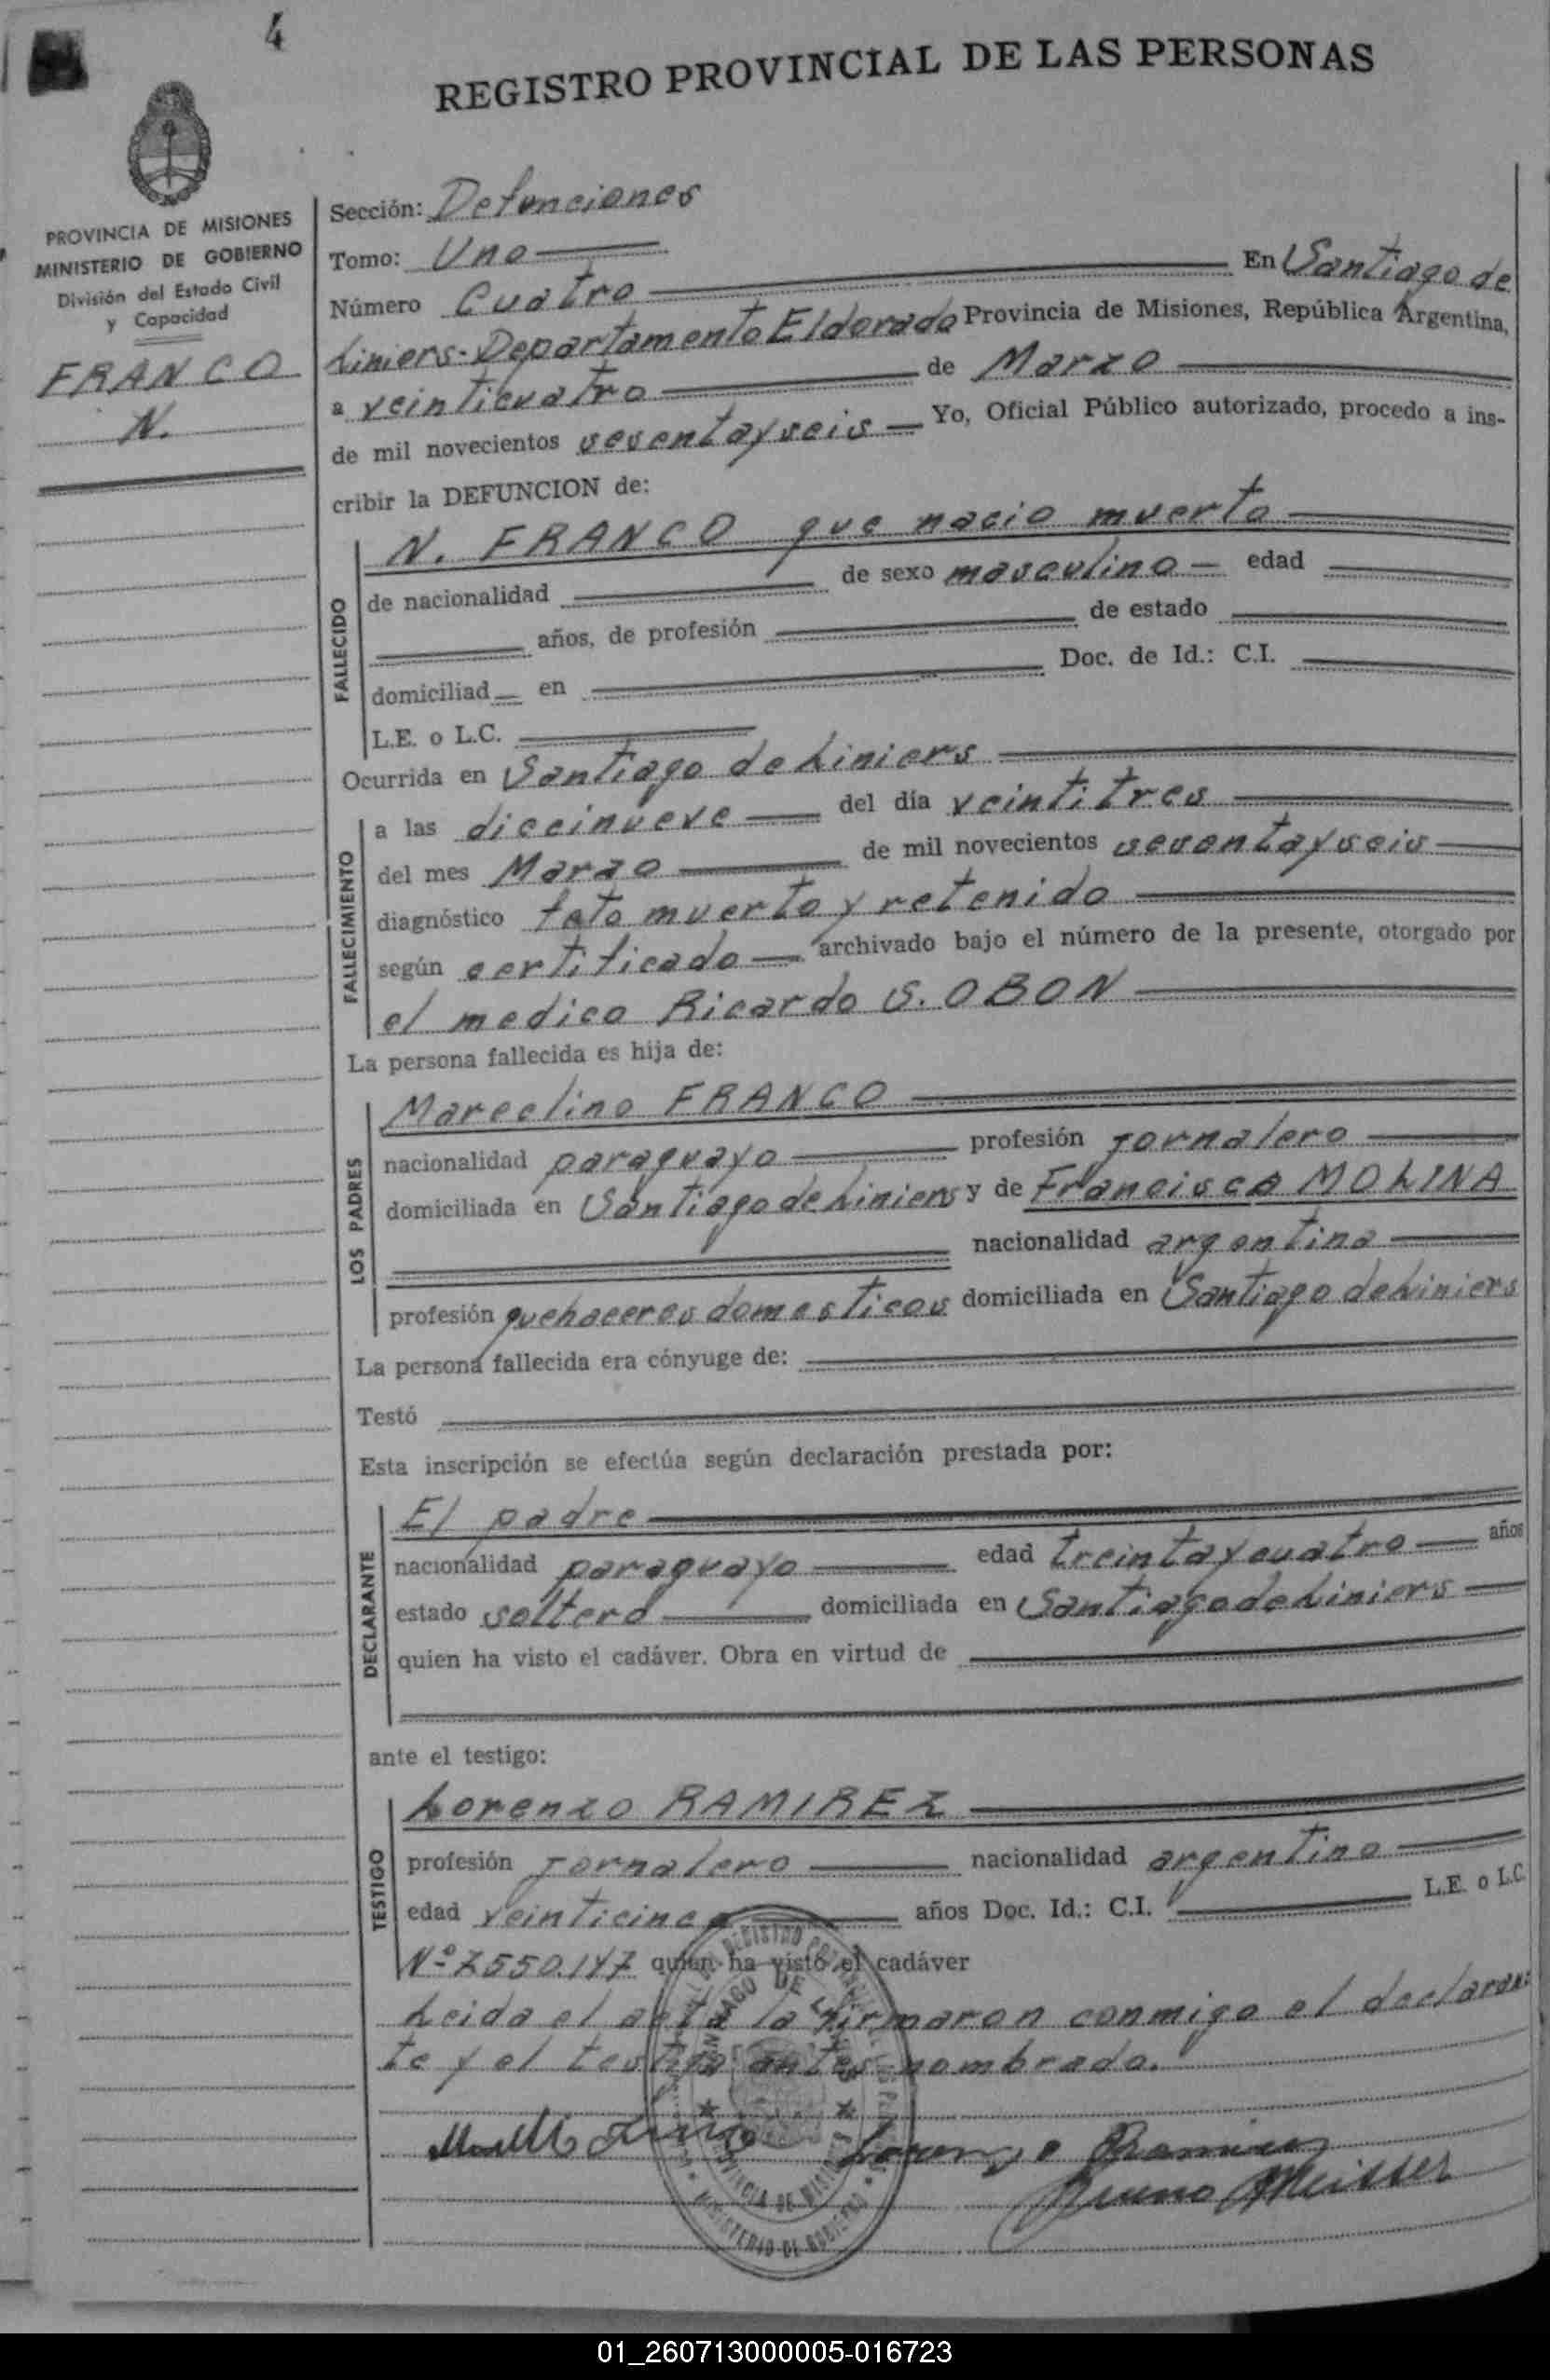 4
REGISTRO PROVINCIAL DE LAS PERSONAS
PROVINCIA DE MISIONES
MINISTERIO DE GOBIERNO
División del Estado Civil
y Capacidad
FRANCO
N.
Sección: Defunciones
Tomo: Uno
Número Cuatro En Santiago de
Liniers - Departamento Eldorado Provincia de Misiones, República Argentina,
a veinticuatro de Marzo
de mil novecientos sesentayseis Yo, Oficial Público autorizado, procedo a ins-
cribir la DEFUNCION de:
FALLECIDO
N. FRANCO que nacio muerto
de nacionalidad de sexo masculino edad
años, de profesión de estado
domiciliad en Doc. de Id.: C.I.
L.E. o L.C.
Ocurrida en Santiago de Liniers
FALLECIMIENTO
a las diecinueve del día veintitres
del mes Marzo de mil novecientos sesentayseis
diagnóstico feto muerto y retenido
según certificado archivado bajo el número de la presente, otorgado por
el medico Ricardo S. OBON
La persona fallecida es hija de:
LOS PADRES
Marcelino FRANCO
nacionalidad paraguayo profesión jornalero
domiciliada en Santiago de Liniers y de Francisca MOLINA
nacionalidad argentina
profesión quehaceres domesticos domiciliada en Santiago de Liniers
La persona fallecida era cónyuge de:
Testó
Esta inscripción se efectúa según declaración prestada por:
DECLARANTE
El padre
nacionalidad paraguayo edad treintaycuatro años
estado soltero domiciliada en Santiago de Liniers
quien ha visto el cadáver. Obra en virtud de
ante el testigo:
TESTIGO
Lorenzo RAMIREZ
profesión jornalero nacionalidad argentino
edad veinticinco años Doc. Id.: C.I. L.E. o L.C.
Nº 7.550.147 quien ha visto el cadáver
Leida el acta la firmaron conmigo el declaran-
te y el testigo antes nombrado.
Lorenzo Ramirez
Bruno Meisser
PROVINCIA DE MISIONES
MINISTERIO DE GOBIERNO
01_260713000005-016723